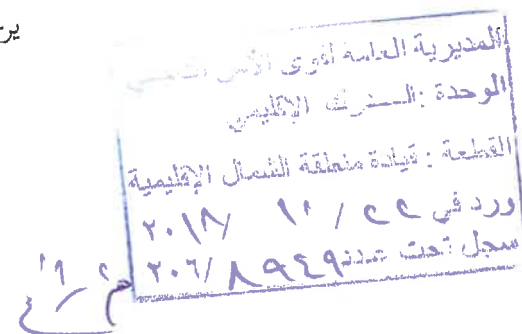 ير
المديرية العامة لقوى الأمن الداخلي
الوحدة : الدرك الإقليمي
القطعة : قيادة منطقة الشمال الإقليمية
ورد في ٢٢ / ١٠ / ٢٠١٨
سجل تحت عدد ٨٩٤٩ /٢٠٦